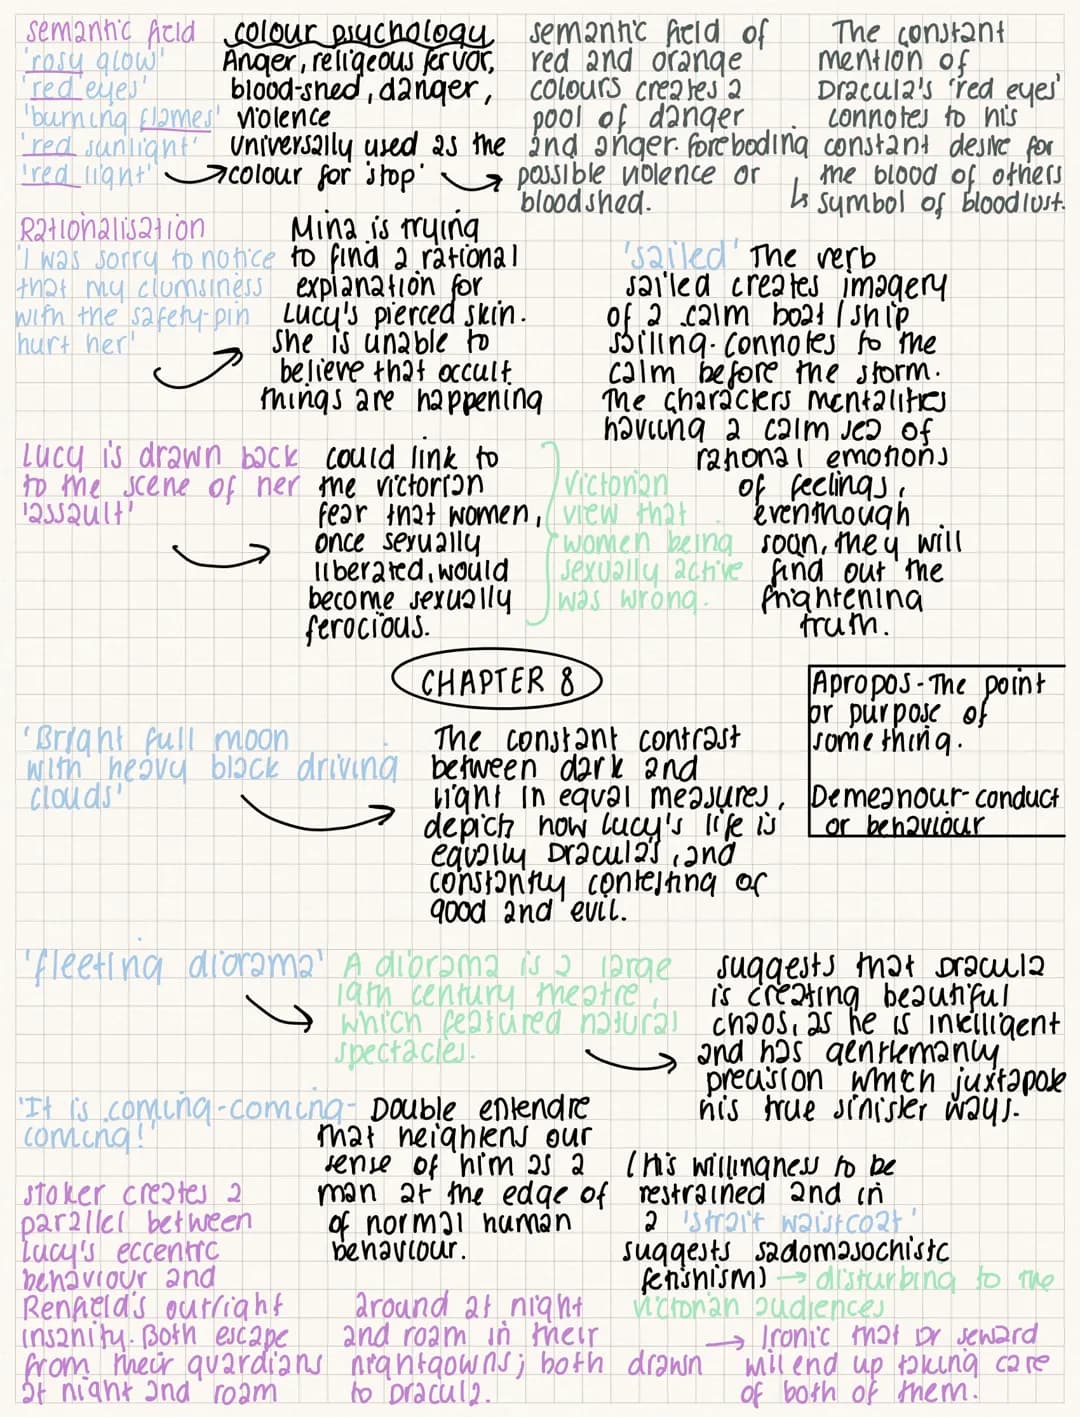 semantic field
'rosy glow'
'red eyes'
'burning flames'
'red sunlight'
'red light'
colour psychology
Anger, religeous fervor,
blood-shed, danger,
violence
universally used as the
colour for 'stop'
semantic field of
red and orange
colours creates a
pool of danger
and anger. foreboding
possible violence or
bloodshed.
The constant
mention of
Dracula's 'red eyes'
connotes to his
constant desire for
the blood of others
symbol of bloodlust.
Rationalisation
'I was sorry to notice
that my clumsiness
with the safety-pin
hurt her'
Mina is trying
to find a rational
explanation for
Lucy's pierced skin.
she is unable to
believe that occult
things are happening
'sailed' The verb
sailed creates imagery
of a calm boat / ship
sailing. connotes to the
calm before the storm.
The characters mentalities
having a calm sea of
rational emotions
of feelings,
eventhough
soon, they will
find out the
frightening
truth.
Lucy is drawn back
to the scene of her
'assault'
could link to
the victorian
fear that women,
once sexually
liberated, would
become sexually
ferocious.
victorian
view that
women being
sexually active
was wrong.
CHAPTER 8
Apropos - The point
or purpose of
something.
Demeanour - conduct
or behaviour
'Bright full moon
with heavy black driving
clouds'
The constant contrast
between dark and
light in equal measures,
depicts how Lucy's life is
equally Dracula's, and
constantly contesting of
good and evil.
'fleeting diorama'
A diorama is a large
19th century theatre,
which featured natural
spectacles.
suggests that Dracula
is creating beautiful
chaos, as he is intelligent
and has gentlemanly
precision which juxtapose
his true sinister ways.
'It is coming-coming-
coming!'
Double entendre
that heightens our
sense of him as a
man at the edge of
of normal human
behaviour.
(His willingness to be
restrained and in
a 'strait waistcoat'
suggests sadomasochistc
fetishism) → disturbing to the
victorian audiences
stoker creates a
parallel between
Lucy's eccentric
behaviour and
Renfield's outright
insanity. Both escape
from their guardians
at night and roam
around at night
and roam in their
nightgowns; both drawn
to Dracula.
Ironic that Dr seward
will end up taking care
of both of them.